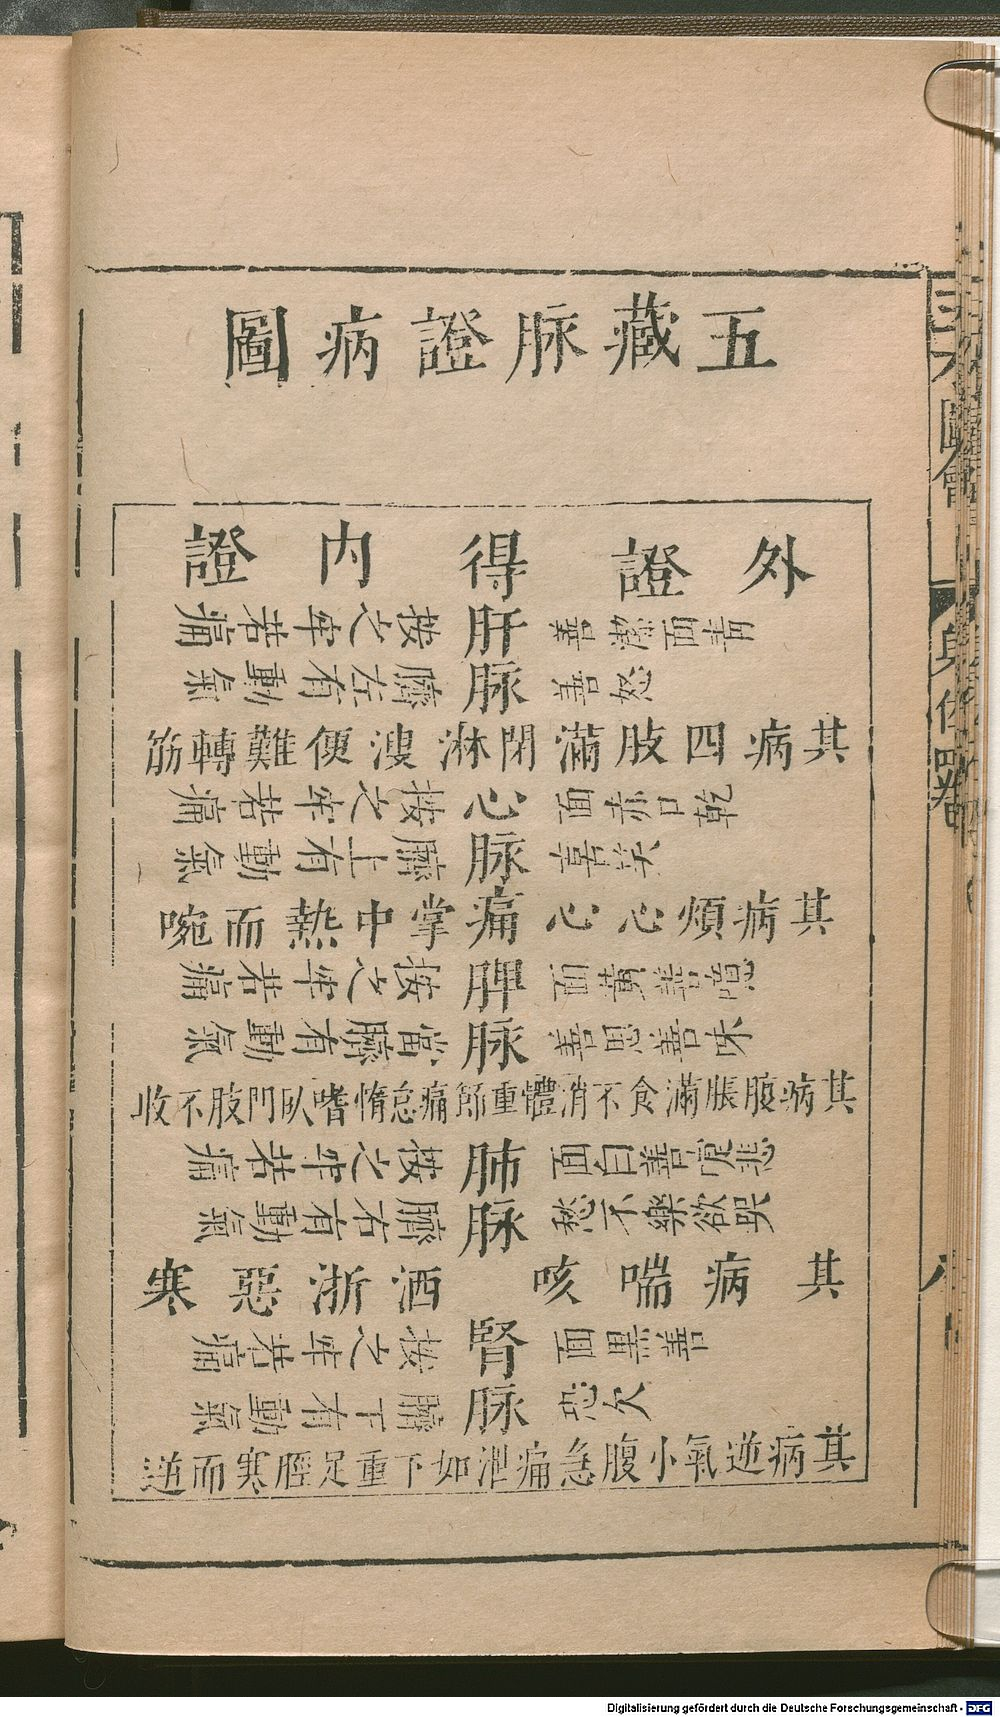 五藏脉證病圖
外證 得 內證
善潔面青 肝 按之牢若痛
善怒 脉 臍左有動氣
其病四肢滿閉淋溲便難轉筋
面赤口乾 心 按之牢若痛
喜笑 脉 臍上有動氣
其病煩心心痛掌中熱而啘
面黃善噫 脾 按之牢若痛
善思善味 脉 當臍有動氣
其病腹脹滿食不消體重節痛怠惰嗜臥門肢不收
面白善嚏悲 肺 按之牢若痛
愁不樂欲哭 脉 臍右有動氣
其病喘咳洒浙惡寒
面黑善 腎 按之牢若痛
恐欠 脉 臍下有動氣
其病逆氣小腹急痛泄如下重足脛寒而逆
Digitalisierung gefördert durch die Deutsche Forschungsgemeinschaft - DFG